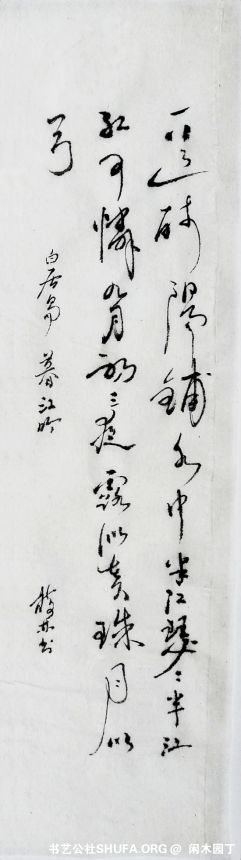 一道残陽鋪水中半江瑟〻半江
红可憐九月初三夜露似真珠月似
弓
白居易 暮江吟
书
书艺公社SHUFA.ORG @ 闲木园丁